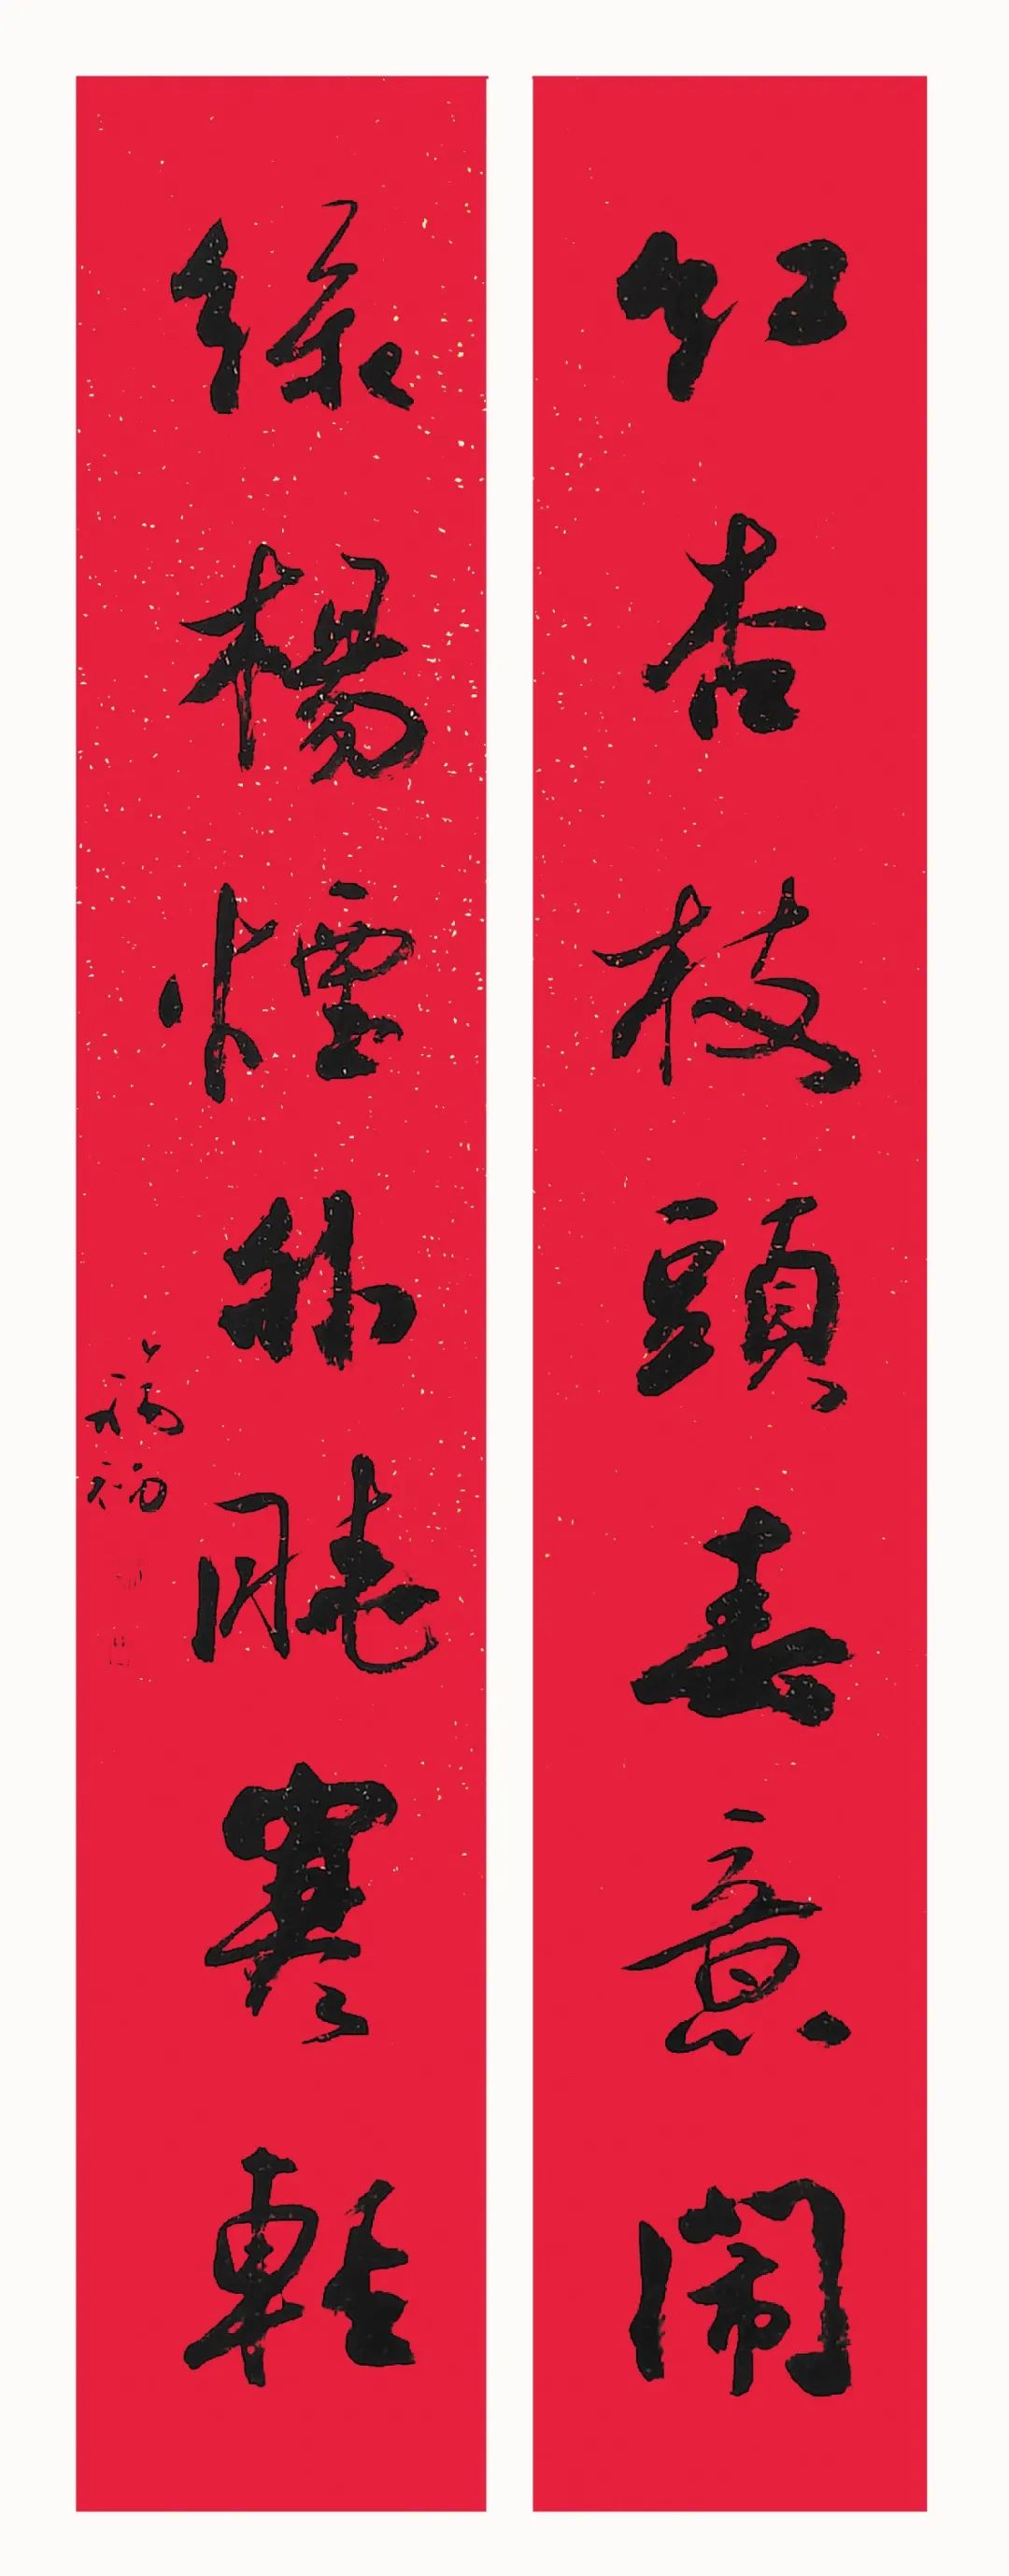 紅杏枝頭春意闹
綠楊煙外曉寒輕